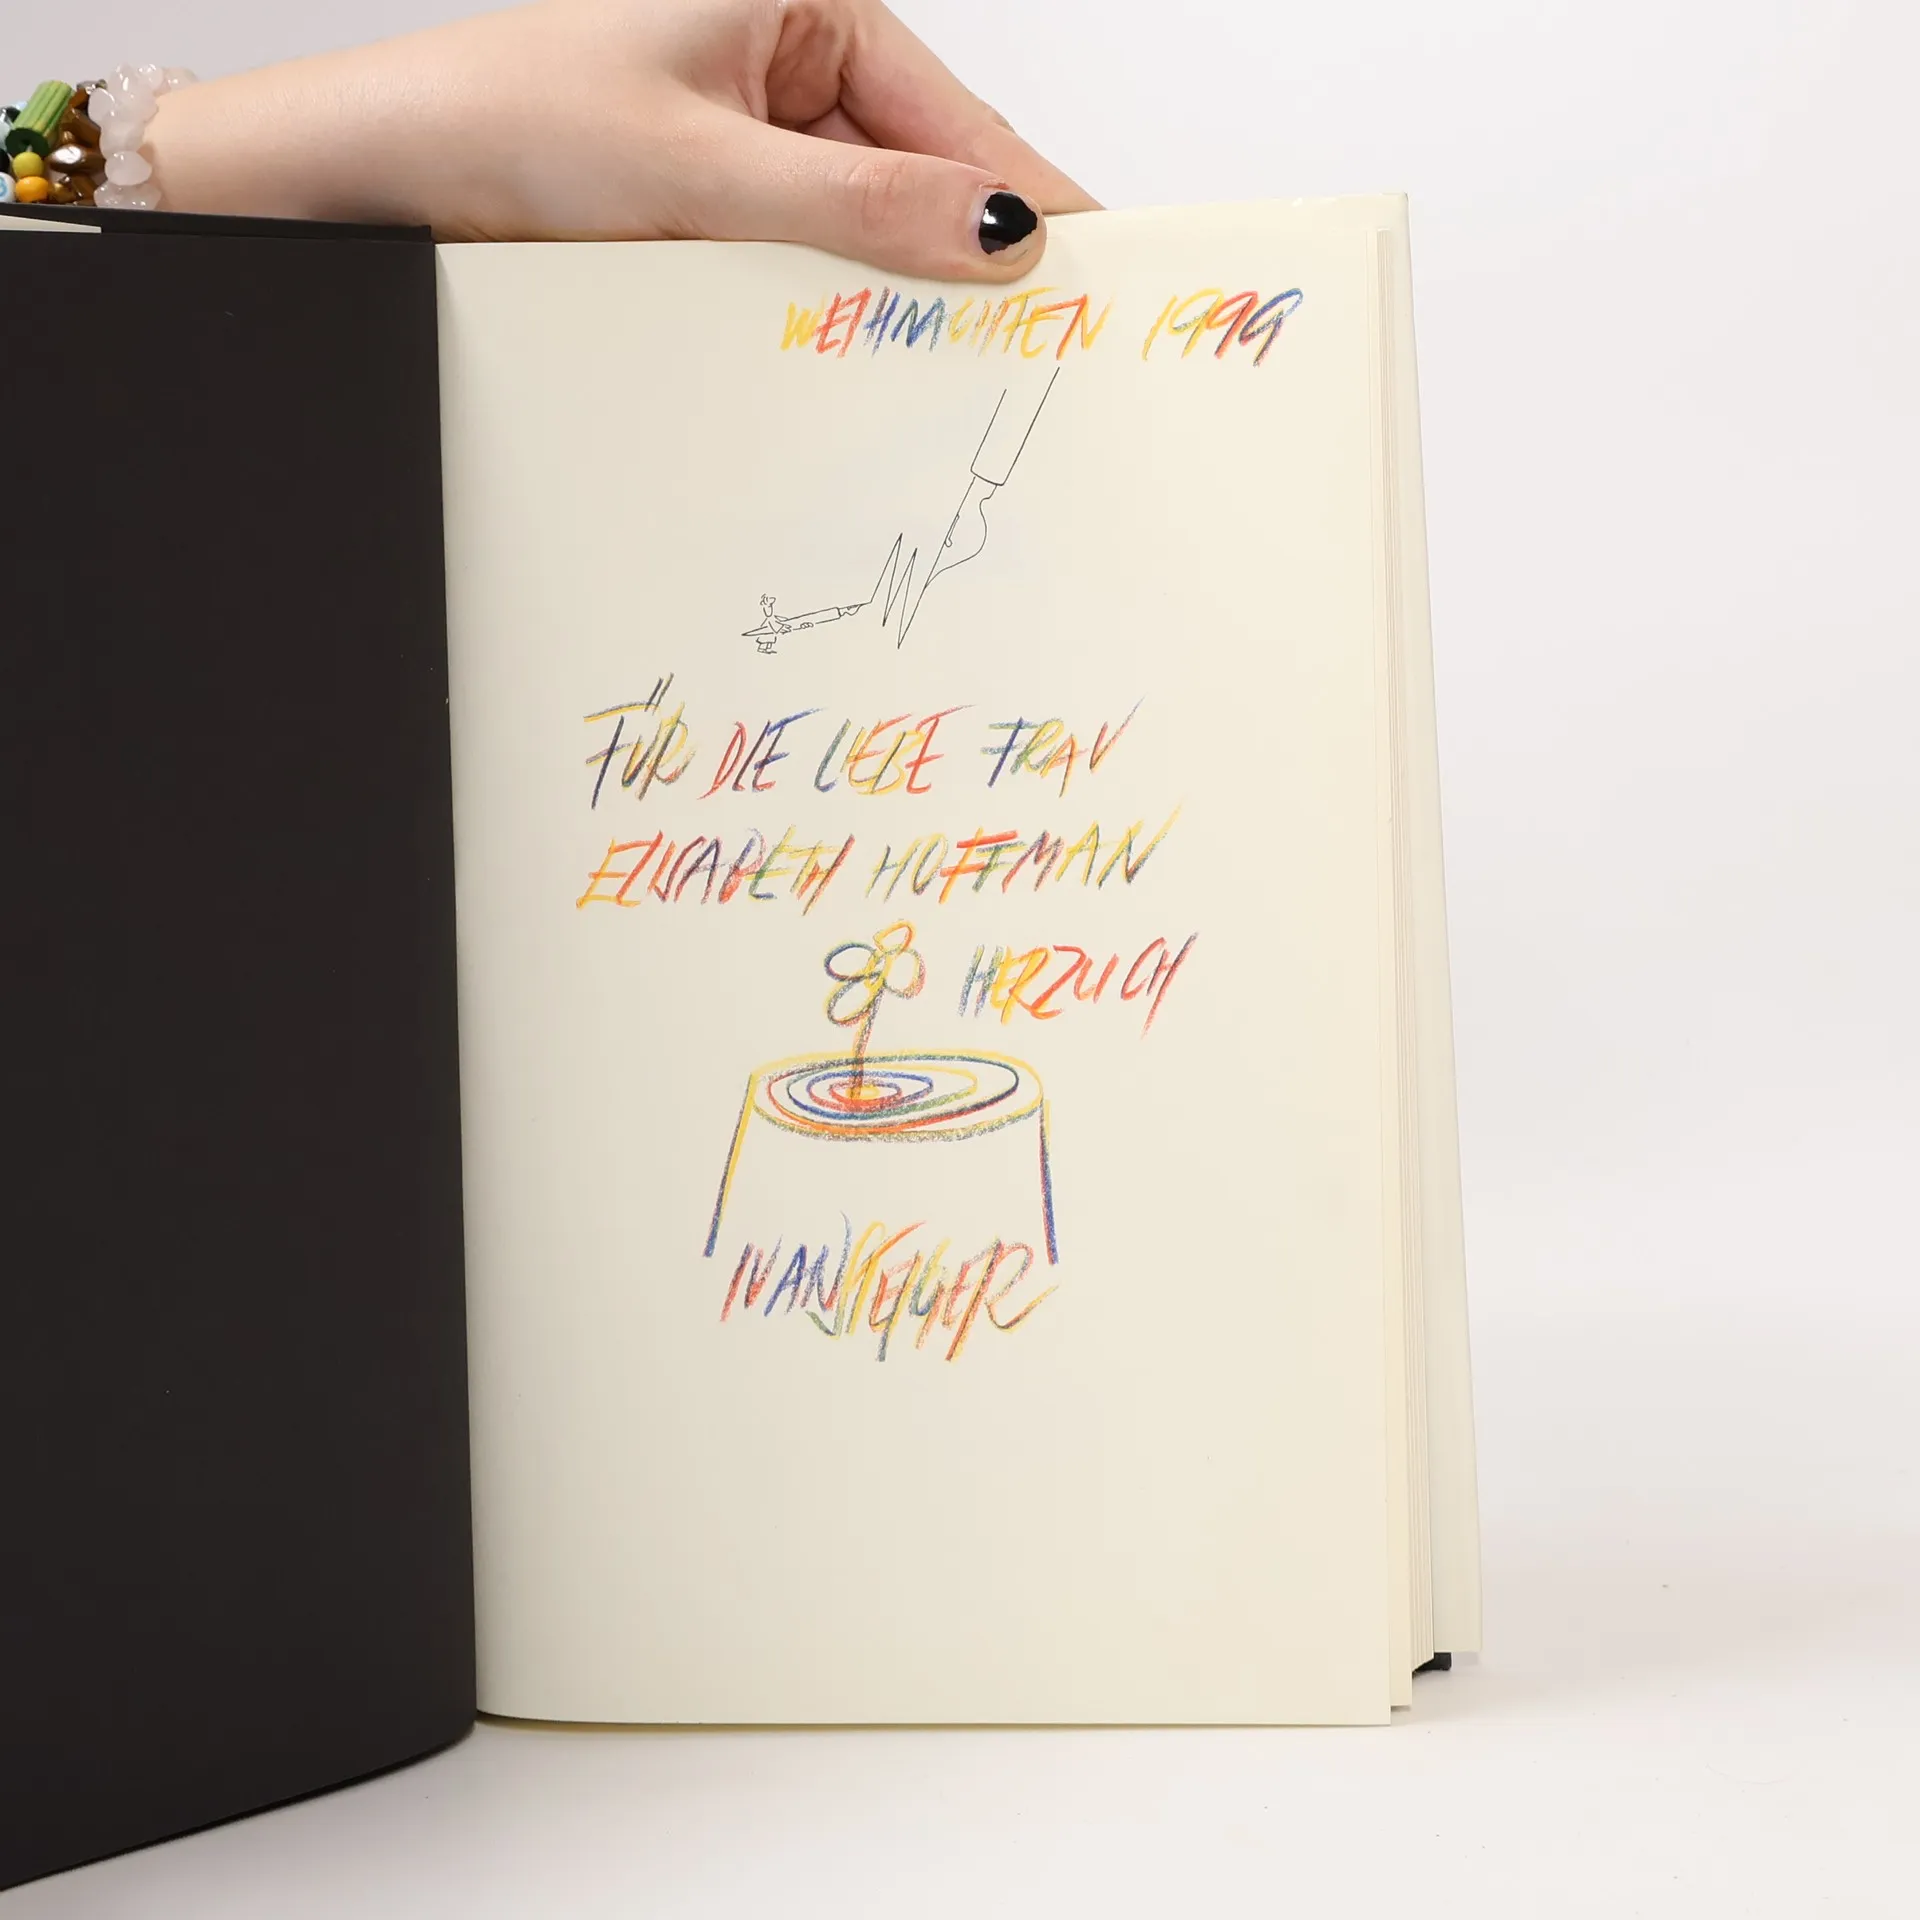 WEIHNACHTEN 1999
FÜR DIE LIEBE FRAU
ELISABETH HOFFMAN
HERZLICH
IVAN STEIGER